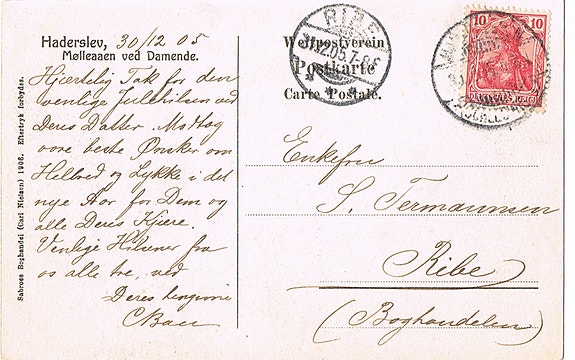 Haderslev, 30/12 05
Mølleaaen ved Damende.
Hjertelig Tak for den
venlige Julehilsen ved
Deres Datter. Modtag
vore bedste Ønsker om
Helbred og Lykke i det
nye Aar for Dem og
alle Deres Kjære.
Venlige Hilsener fra
os alle tre, ved
Deres hengivne
Sabroes Boghandel (Carl Nielsen) 1906. Eftertryk forbydes.
Weltpostverein
Postkarte
Carte Postale.
RIBE
31.12.05.7-8F
10 10
Enkefru
S. Termansen
Ribe
(Boghandelen)